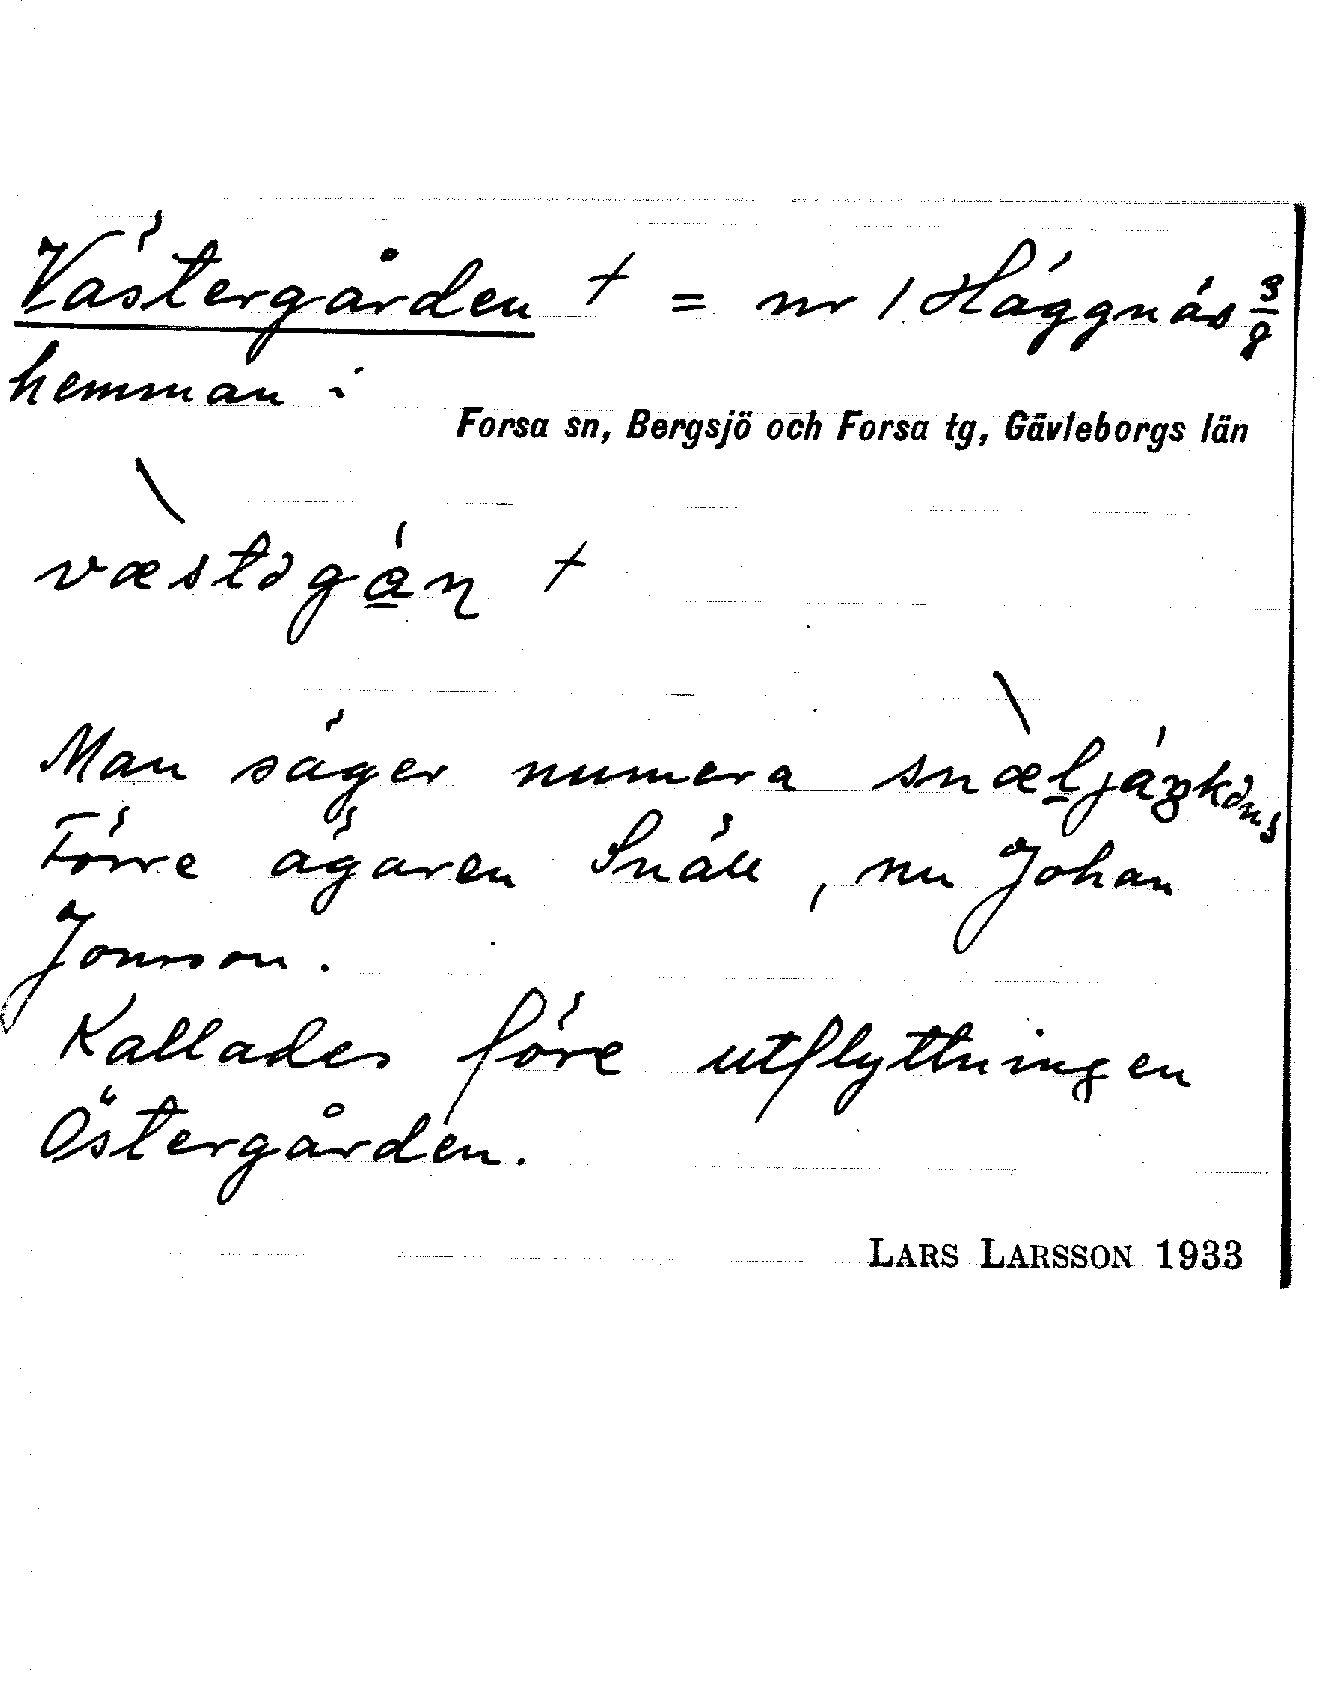 Västergården † = nr 1 Häggnäs 3/8
hemman i
Forsa sn, Bergsjö och Forsa tg, Gävleborgs län
væstəgån †
Man säger numera
Förre ägaren Snäll, nu Johan
Jonsson.
Kallades före utflyttningen
Östergården.
LARS LARSSON 1933